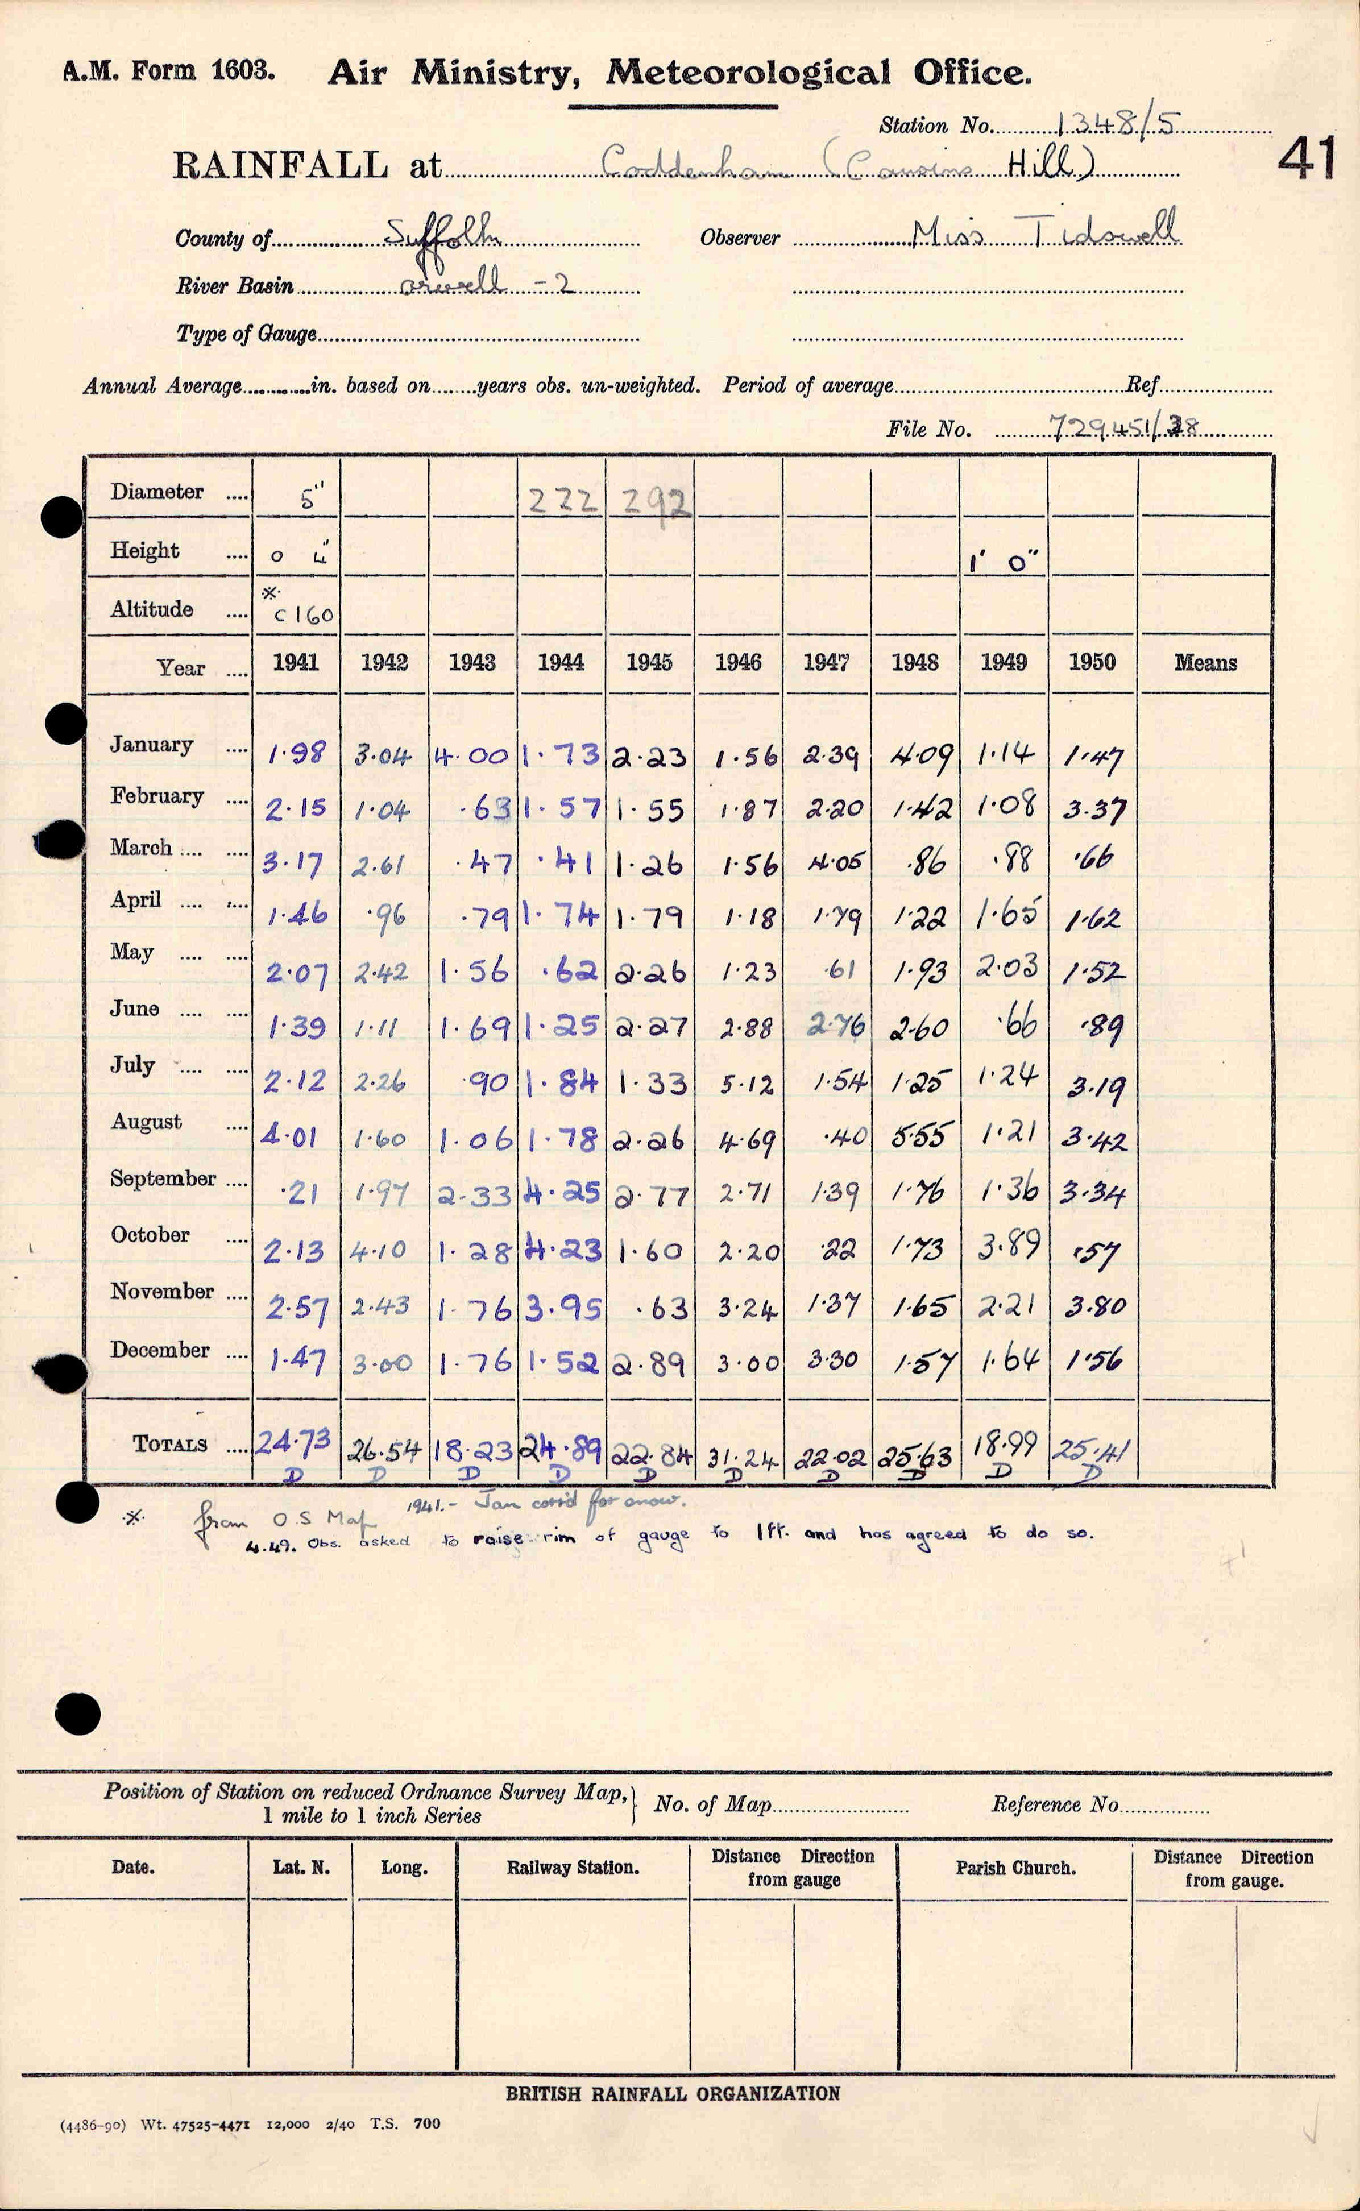 A.M. Form 1603. Air Ministry, Meteorological Office.
Station No. 1348/5
41
RAINFALL at Coddenham (Cousins Hill)
County of Suffolk Observer Miss Tidswell
River Basin Orwell - 2
Type of Gauge
Annual Average in. based on years obs. un-weighted. Period of average Ref
File No. 729451/38
Diameter 5" 222 292
Height 0 4" 1' 0"
Altitude * c 160
Year 1941 1942 1943 1944 1945 1946 1947 1948 1949 1950 Means
January 1.98 3.04 4.00 1.73 2.23 1.56 2.39 4.09 1.14 1.47
February 2.15 1.04 .63 1.57 1.55 1.87 2.20 1.42 1.08 3.37
March 3.17 2.61 .47 .41 1.26 1.56 4.05 .86 .88 .66
April 1.46 .96 .79 1.74 1.79 1.18 1.79 1.22 1.65 1.62
May 2.07 2.42 1.56 .62 2.26 1.23 .61 1.93 2.03 1.52
June 1.39 1.11 1.69 1.25 2.27 2.88 2.76 2.60 .66 .89
July 2.12 2.26 .90 1.84 1.33 5.12 1.54 1.25 1.24 3.19
August 4.01 1.60 1.06 1.78 2.26 4.69 .40 5.55 1.21 3.42
September .21 1.97 2.33 4.25 2.77 2.71 1.39 1.76 1.36 3.34
October 2.13 4.10 1.28 4.23 1.60 2.20 .22 1.73 3.89 .57
November 2.57 2.43 1.76 3.95 .63 3.24 1.37 1.65 2.21 3.80
December 1.47 3.00 1.76 1.52 2.89 3.00 3.30 1.57 1.64 1.56
TOTALS 24.73 26.54 18.23 24.89 22.84 31.24 22.02 25.63 18.99 25.41
D D D D D D D D D D
* from O.S Map 1941.- Jan corr'd for snow.
4.49. Obs. asked to raise rim of gauge to 1ft. and has agreed to do so.
Position of Station on reduced Ordnance Survey Map, 1 mile to 1 inch Series } No. of Map Reference No
Date. Lat. N. Long. Railway Station. Distance Direction from gauge Parish Church. Distance Direction from gauge.
BRITISH RAINFALL ORGANIZATION
(4486-90) Wt. 47525-4471 12,000 2/40 T.S. 700